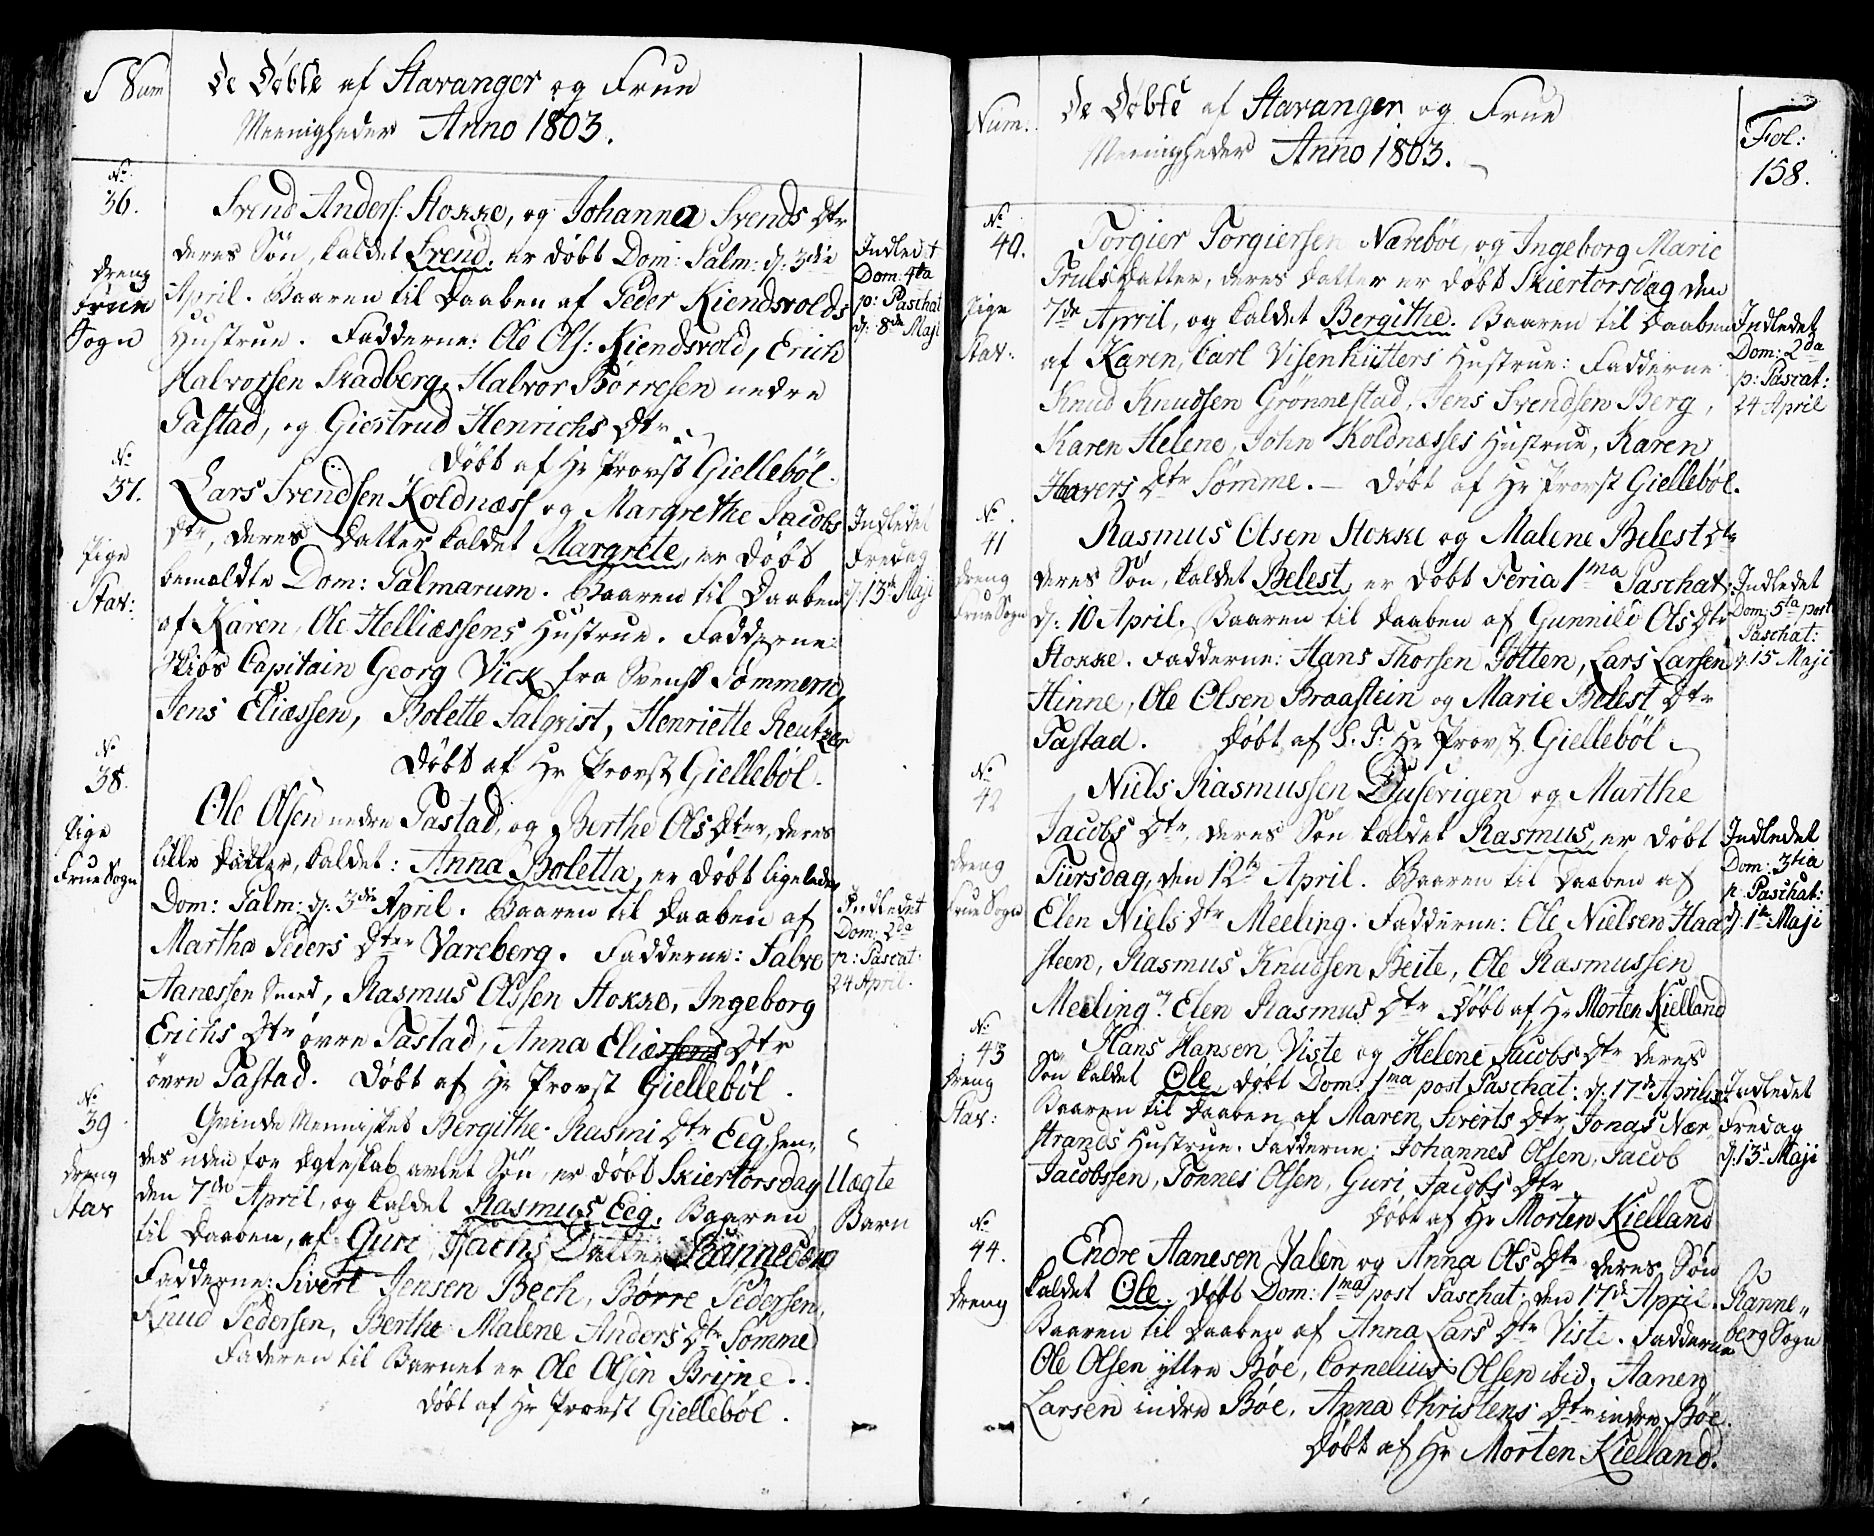 Num
De Døbte af Stavanger og Frue
Meenigheder Anno 1803.
No
36.
Dreng
Frue
Sogn
Svend Anders: Stokke, og Johanna Svends Dtr
deres Søn, kaldet Svend, er døbt Dom: Palm: d: 3die
April. Baaren til Daaben af Peder Kiendsvolds
Hustrue. Fadderne: Ole Ols: Kiendsvold, Erich
Halvorssen Stadberg, Halvor Börresen nedre
Tastad, og Giertrud Henrichs Dtr
Døbt af Hr Provst Giellebøl.
Indledt
Dom: 4ta
p: Paschat
d: 8de Maji
No
37.
Pige
Stav:
Lars Svendsen Koldnæss og Margrethe Jacobs
Dtr, deres Datter kaldet Margrete, er døbt
bemeldte Dom: Palmarum. Baaren til Daaben
af Karen, Ole Helliæssens Hustrue. Fadderne:
Skibs Capitain Georg Vick fra Svensk Pommern,
Jens Eliæssen, Bolette Salqvist, Henriette Reutzer
Døbt af Hr Provst Giellebøl.
Indledet
Fredag
d: 13de Maji
No
38.
Pige
Frue Sogn
Ole Olsen nedre Tastad, og Berthe Ols Dtr, deres
lille Datter, kaldet: Anna Boletta, er døbt ligeledes
Dom: Palm: d: 3die April. Baaren til Daaben af
Martha Peders Dtr Vareberg. Fadderne: Salve
Aanessen Smed, Rasmus Olssen Stokke, Ingeborg
Erichs Dtr øvre Tastad, Anna Eliæssens Dtr
øvre Tastad. Døbt af Hr Provst Giellebøl.
Indledet
Dom: 2da
p: Pascat:
24 April.
No
39
Dreng
Stav
Qvinde Mennisket Bergithe Rasmi Dtr Eeg, hen„
des uden for Egteskab avlet Søn, er døbt Skiertorsdag
den 7de April, og kaldet Rasmus Eeg. Baaren
til Daaben, af Guri Isachs Datter Ranneberg
Fadderne: Sivert Jensen Bech, Børre Pedersen,
Knud Pedersen, Berthe Malene Anders Dtr Sømme
Faderen til Barnet er Ole Olsen Brime.
Døbt af Hr Provst Giellebøl.
Uægte
Barn
Num:
De Døbte af Stavanger og Frue
Meenigheder Anno 1803.
Fol:
158.
No
40.
Pige
Stav:
Torgier Torgiersen Nærebøe, og Ingeborg Marie
Truls Datter, deres Datter er døbt Skiertorsdag den
7de April, og kaldet Bergithe. Baaren til Daaben
af Karen, Carl Visenhütters Hustrue: Fadderne
Knud Knudsen Grønnestad, Jens Svendsen Berg,
Karen Helene, John Koldnæsses Hustrue, Karen
Havers Dtr Sømme. — Døbt af Hr Provst Giellebøl.
Indledet
Dom: 2da
p: Pascat:
24 April
No
41
Dreng
Frue Sogn
Rasmus Olsen Stokke og Malene Belest Dtr
deres Søn, kaldet Belest, er døbt Feria 1ma Paschat:
d: 10 April. Baaren til Daaben af Gunnild Ols Dtr
Stokke. Fadderne: Hans Thorsen Jotten, Lars Larsen
Hinne, Ole Olsen Braastein og Marie Belest Dtr
Tastad. Døbt af S. T: Hr Provst Giellebøl
Indledet
Dom: 5ta post
Paschat:
d: 15 Maji
No
42
Dreng
Frue Sogn
Niels Rasmussen Dusevigen og Marthe
Jacobs Dtr, deres Søn kaldet Rasmus, er døbt
Tirsdag, den 12te April. Baaren til Daaben af
Elen Niels Dtr Meeling. Fadderne: Ole Nielsen Haa
steen, Rasmus Knudsen Beite, Ole Rasmussen
Meeling og Elen Rasmus Dtr Døbt af Hr Morten Kielland
Indledet
Dom: 3tia
p: Paschat:
d: 1te Maji
No
43
Dreng
Stav:
Hans Hansen Viste og Helene Jacobs Dtr deres
Søn kaldet Ole, døbt Dom: 1ma post Paschat: d: 17de Aprilis.
Baaren til Daaben af Maren Siverts Dtr, Jonas Nær
strands Hustrue. Fadderne: Johannes Olsen, Jacob
Jacobssen, Tonnes Olsen, Guri Jacobs Dtr
Døbt af Hr Morten Kielland
Indledet
Fredag
d: 13de Maji
No
44.
Dreng
Endre Aanesen Valen og Anna Ols Dtr deres Søn
kaldet Ole. døbt Dom: 1ma post Paschat: den 17de April.
Baaren til Daaben af Anna Lars Dtr Viste. Fadderne
Ole Olsen yttre Bøe, Cornelius Olsen ibid, Aanen
Larsen indre Bøe, Anna Christens Dtr indre Bøe.
Døbt af Hr Morten Kielland.
Ranne„
berg Sogn